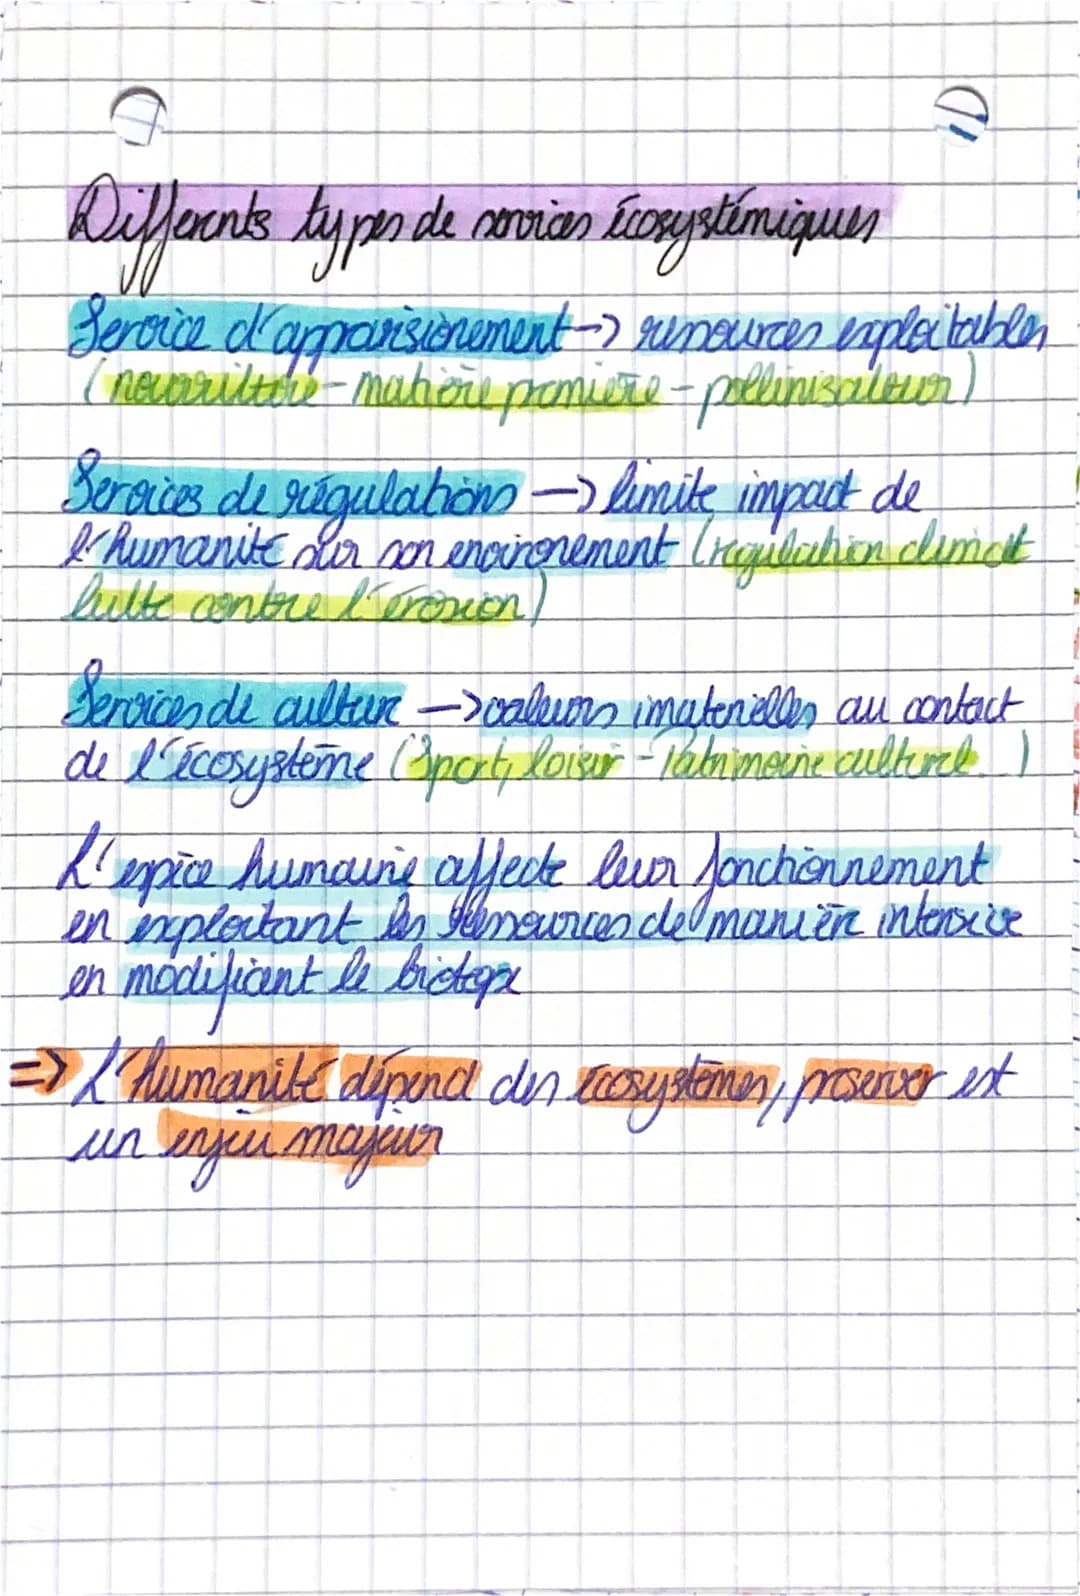 Differents types de services écosystémiques
Service d'apprarisionement -> ressources exploitables
(nourriture - matière première - pollinisateur)
Services de régulations -> limite impact de
l'humanité sur son environement (régulation climat
lutte contre l'érosion)
Services de culture -> valeurs imaterielles au contact
de l'écosystème (Sport, loisir - Patrimoine culturel...)
L'espèce humaine affecte leur fonctionnement
en exploitant les ressources de manière intensive
en modifiant le biotope
=> L'humanité dépend des écosystèmes, préserver est
un enjeu majeur